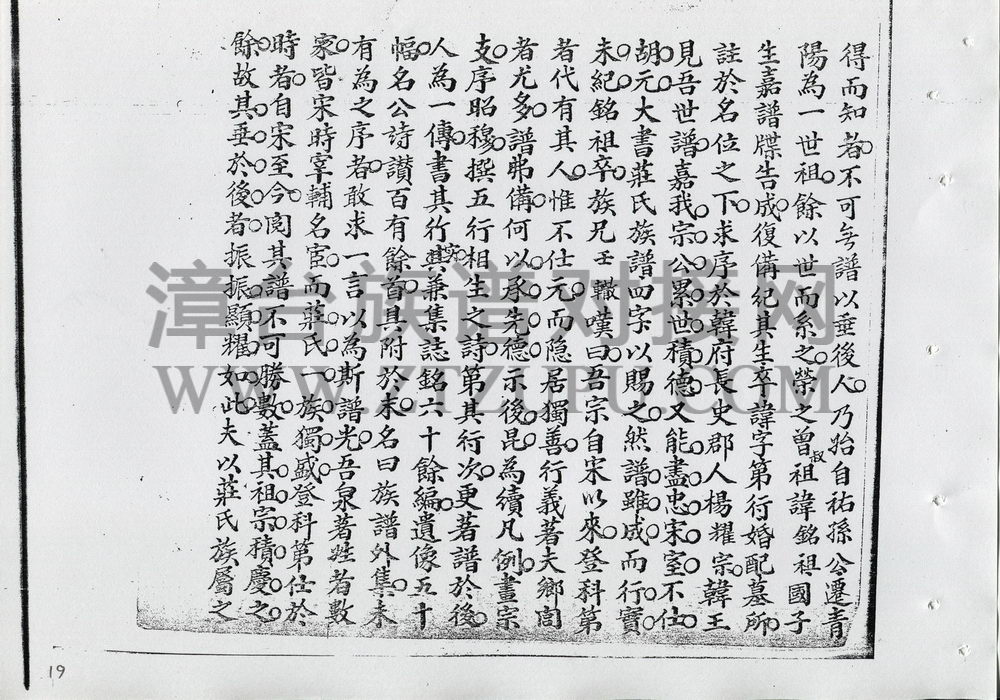 得而知者不可无譜以垂後人乃始自祐孫公遷青
陽為一世祖餘以世而系之榮之曾叔祖諱銘祖國子
生嘉譜牒告成復備紀其生卒諱字第行婚配墓所
註於名位之下求序於韓府長史郡人楊耀宗韓王
見吾世譜嘉我宗公累世積德又能盡忠宋室不仕
胡元大書莊氏族譜四字以賜之然譜雖成而行實
未紀銘祖卒族兄壬轍嘆曰吾宗自宋以來登科第
者代有其人惟不仕元而隐居獨善行義著夫鄉閭
者尤多譜弗備何以承先德示後昆為續凡例畫宗
支序昭穆撰五行相生之詩第其行次更著譜於後
人為一傳書其行實其兼集誌銘六十餘編遺像五十
幅名公詩讃百有餘首具附於末名曰族譜外集未
有為之序者敢求一言以為斯譜光吾泉著姓者數
家皆宋時宰輔名宦而莊氏一族獨盛登科第仕於
時者自宋至今閲其譜不可勝數蓋其祖宗積慶之
餘故其垂於後者振振顯耀如此夫以莊氏族屬之
漳台族谱对接网
WWW.ZTZUPU.COM
19